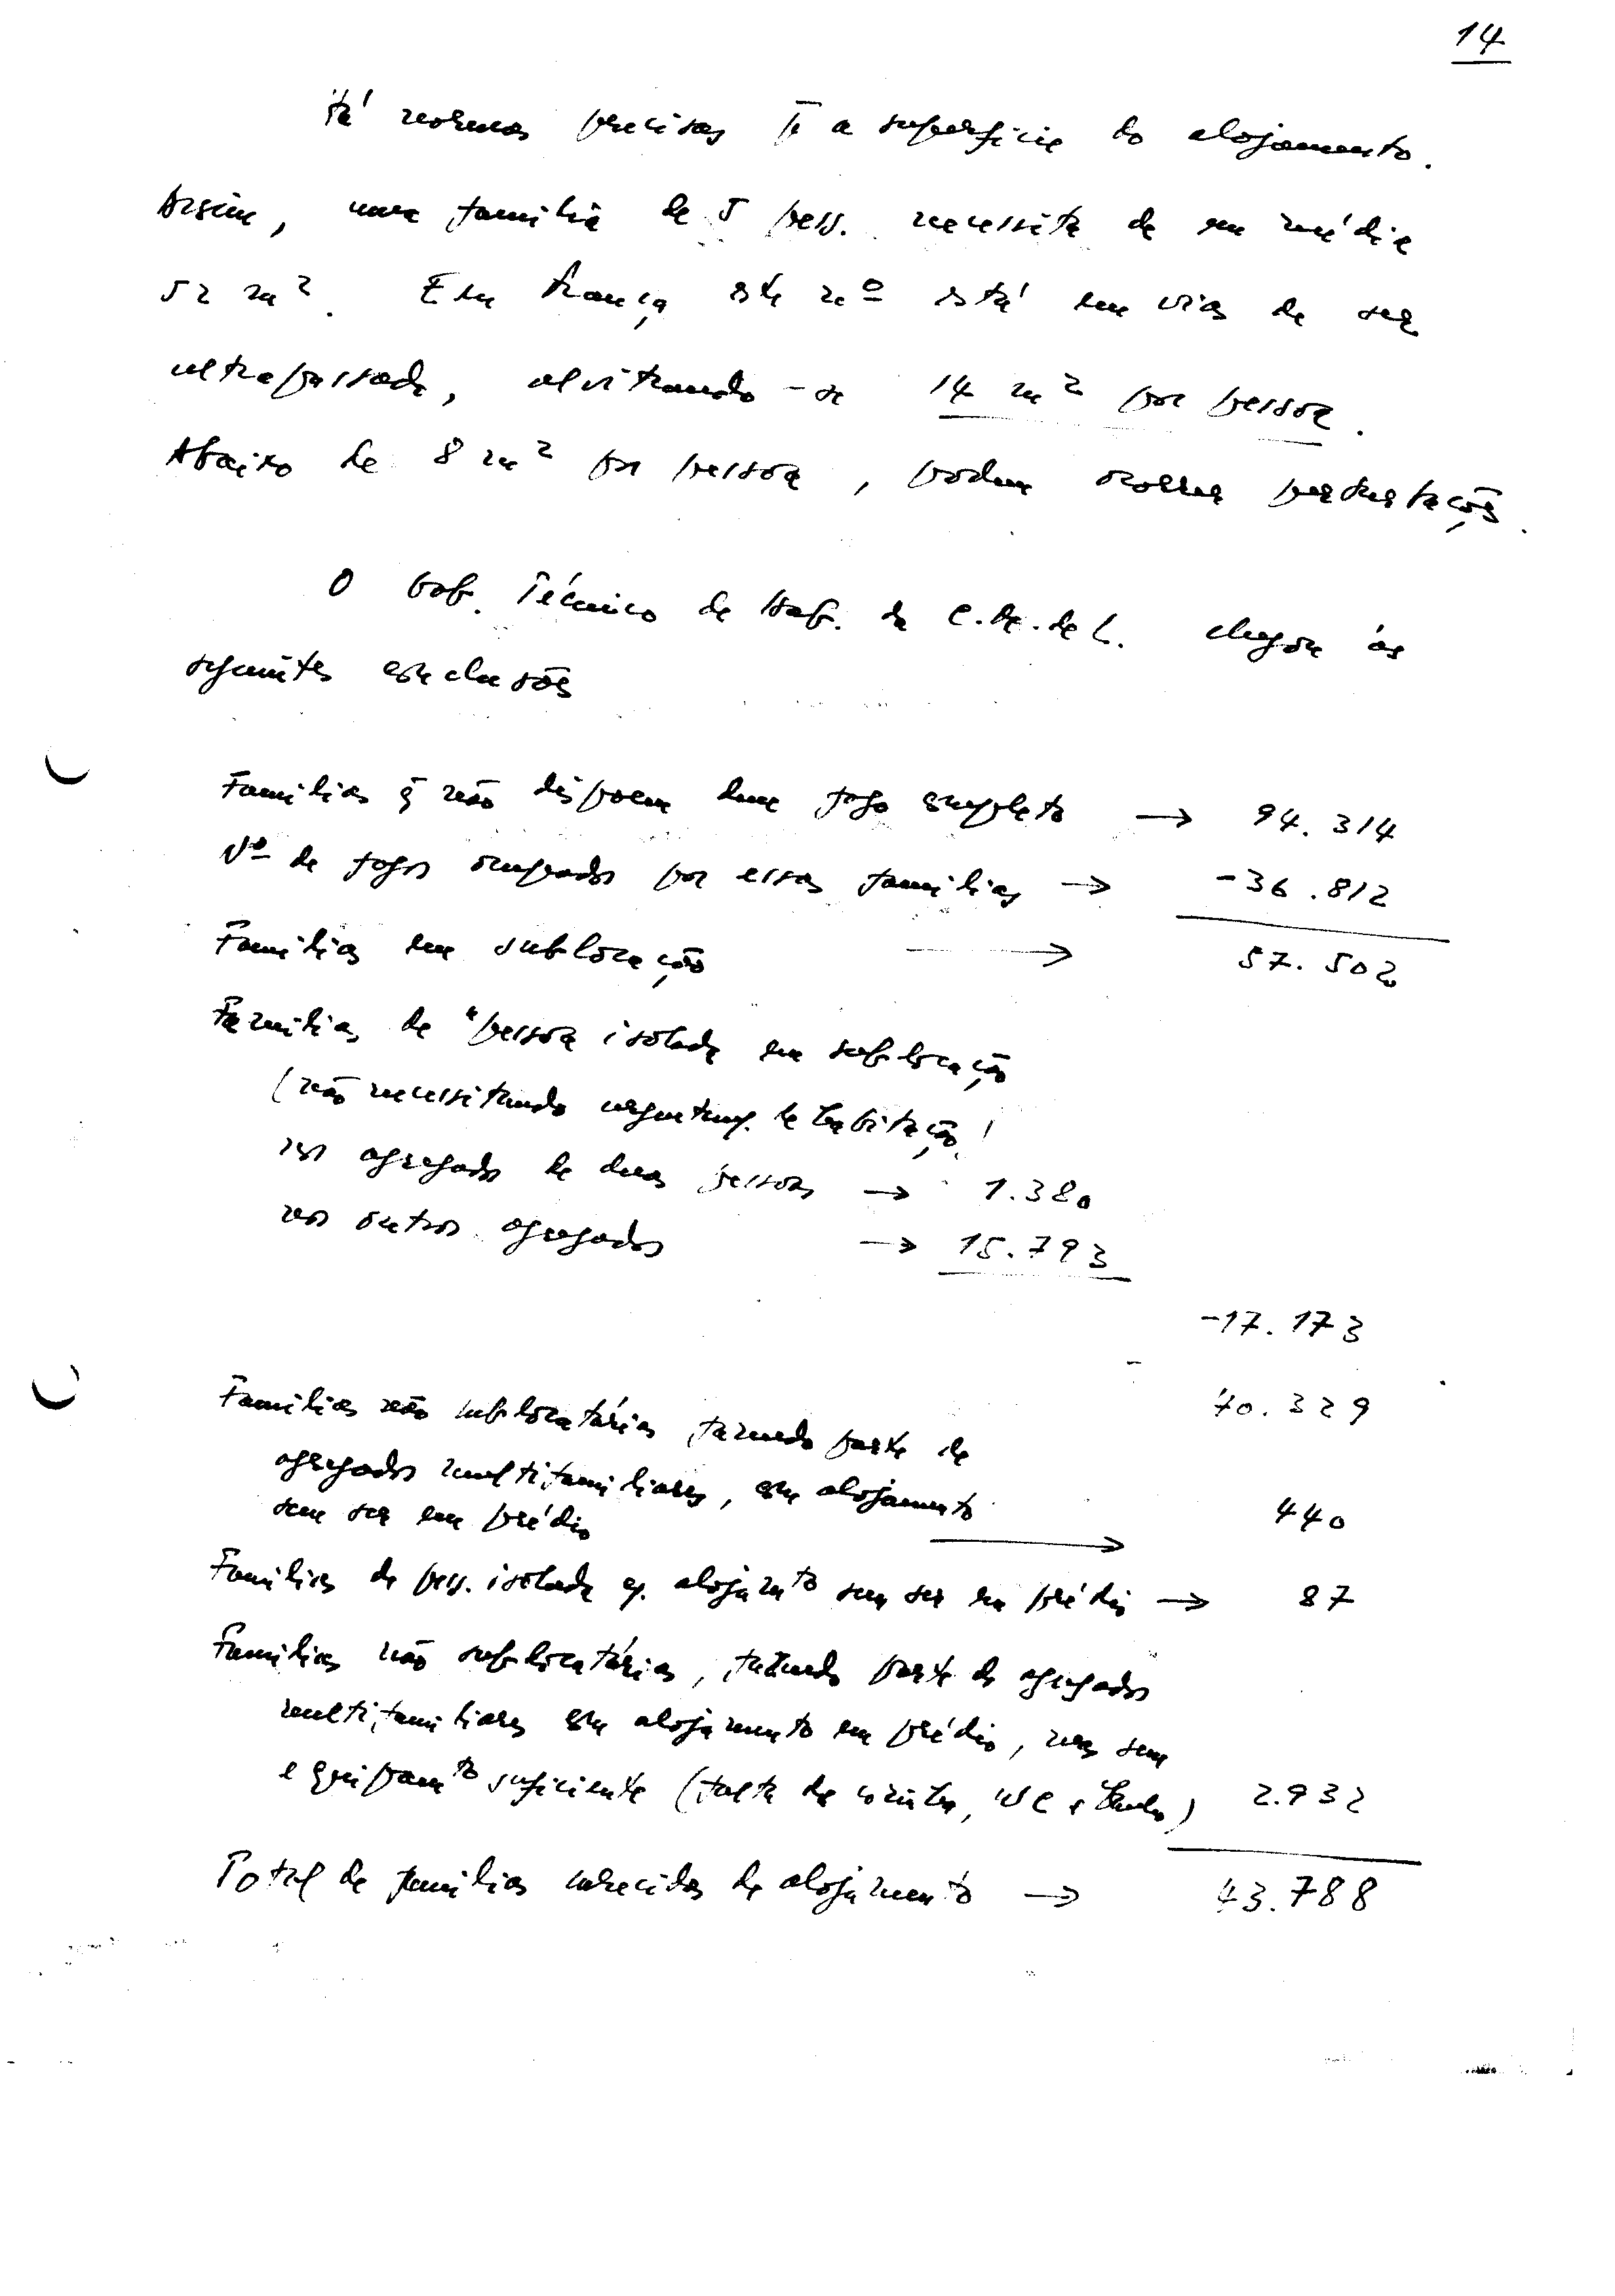 14
Há normas precisas p̄ a superfície do alojamento.
Assim, uma família de 5 pess. necessita de em média
52 m². Em França este nº está em vias de ser
ultrapassado, alvitrando-se 14 m² por pessoa.
Abaixo de 8 m² por pessoa, podem ocorrer perturbações.
O Gab. Técnico de Hab. da C.M. de L. chegou às
seguintes conclusões
Famílias q̄ não dispoem dum fogo completo → 94.314
Nº de fogos ocupados por essas famílias → -36.812
Famílias em sublocação → 57.502
Famílias de "pessoa isolada em sublocação
(não necessitando urgentemg. de habitação)
nos agregados de duas pessoas → 1.380
nos outros agregados → 15.793
-17.173
40.329
Famílias não sublocatárias, fazendo parte de
agregados multifamiliares, em alojamento
sem ser em prédio → 440
Famílias de pess. isolada em alojamto sem ser em prédio → 87
Famílias não sublocatárias, fazendo parte de agregados
multifamiliares em alojamento em prédio, mas sem
equipamto suficiente (falta de cozinha, WC e banho) 2.932
Total de famílias carecidas de alojamento → 43.788